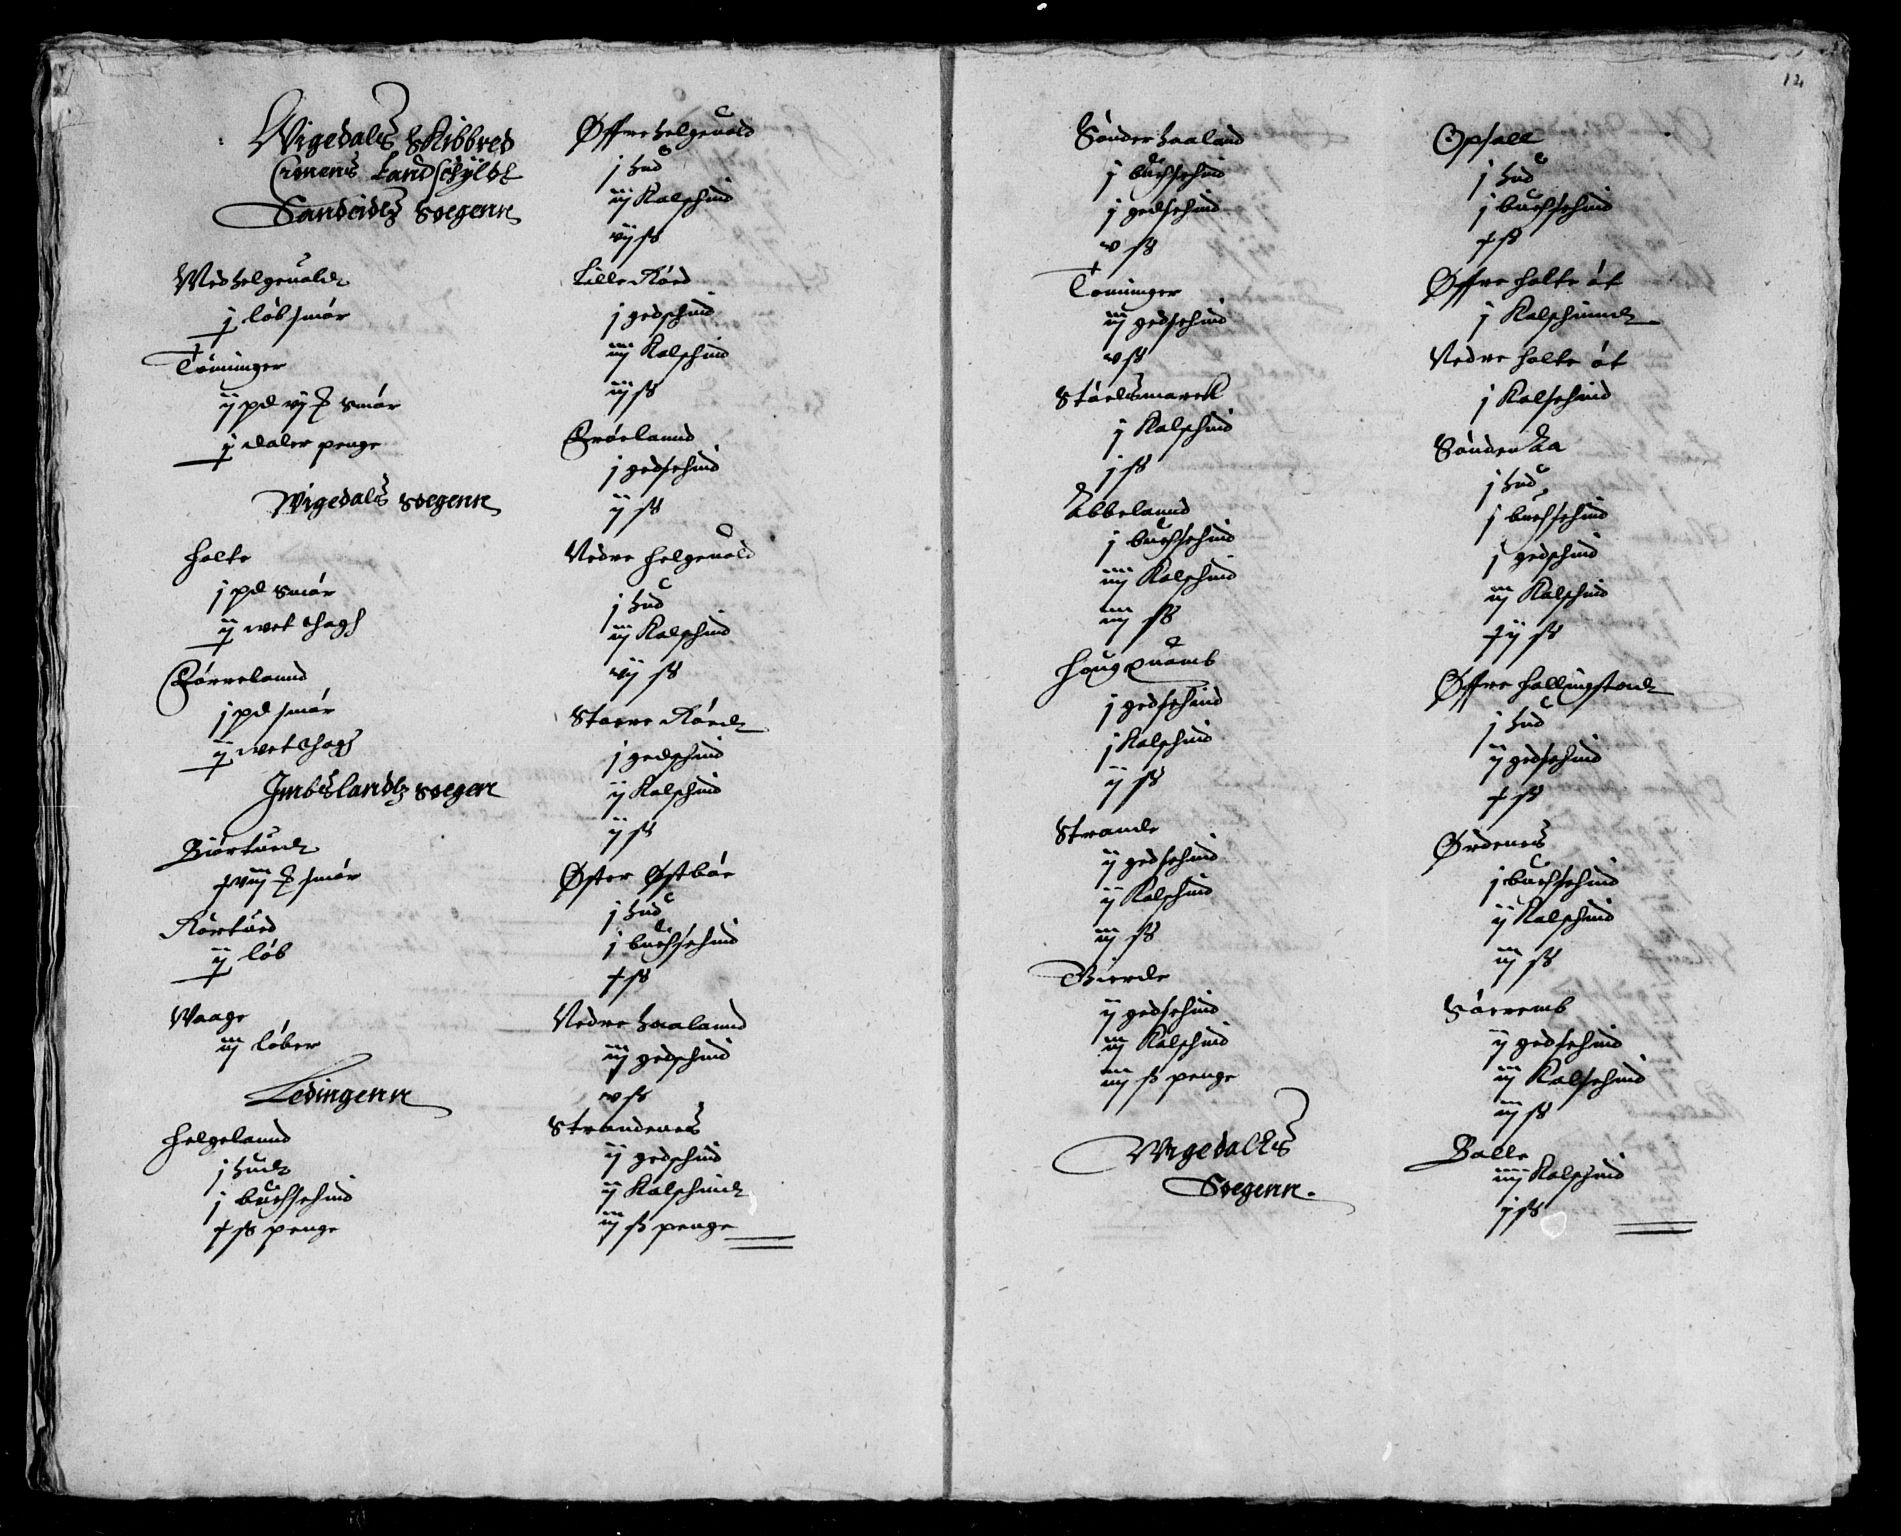 12
Wigedals Skibbred
Cronens Landschyldt
Sandeidtz Soegenn
Ned helgeuold
j løb smør
Tøminger
ij pd vj ℔ smør
j daler penge
Wigedals Soegenn
Holte
j pd smør
ij wet thagh
Børreland
j pd smør
ij wet thagh
Imbslandtz Soegen
Biørtued
xviij ℔ smør
Rørtued
ij løb
Waage
iij løber
Ledingenn
Helgelannd
j hud
j buchschind
x ß penge
Øffre helgeuold
j hud
iij Kalfschind
vij ß
Lille Røed
j gedschind
iiij Kalfschind
iij ß
Brøelannd
j gedschind
ij ß
Nedre Helgeuold
j hud
iij Kalfschind
vij ß
Stoere Røed
j gedschind
ij Kalfschind
ij ß
Øster Østbøe
j hud
j buchschind
x ß
Nedre Haalannd
iij gedschind
v ß
Strandenes
ij gedschind
ij Kalfschind
iij ß penge
Sønder haaland
j buchschind
j gedschind
v ß
Tøminger
iij gedschind
v ß
Støelsmarck
j Kalfschind
j ß
Abbelannd
j buchschind
iiij Kalfschind
iiij ß
Houg
j gedschind
j Kalfschind
ij ß
Strande
ij gedschind
ij Kalfschind
iij ß
Bierde
ij gedschind
iij Kalfschind
iiij ß penge
Wigedalls
Soegenn.
Opsall
j hud
j buchschind
x ß
Øffre holte øt
j Kalfschinnd
Nedre holte øt
j Kalfschind
Sønden Aa
j hud
j buchschind
j gedschind
iij Kalfschind
xij ß
Øffre Hallingstad
j hud
ij gedschind
x ß
Ørdenes
j buchschind
ij Kalfschind
iij ß
Søeremb
ij gedschind
iij Kalfschind
iij ß
Balle
iiij Kalfschind
j ß